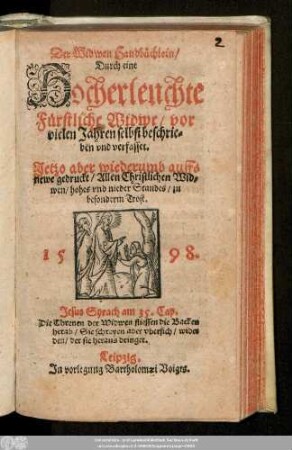 2
Der Widwen Handbüchlein/
Durch eine
Hocherleuchte
Fürstliche Widwe/ vor
vielen Jahren selbst beschrie-
ben vnd verfasset.
Jetzo aber wiederumb auffs
newe gedruckt/ Allen Christlichen Wid-
wen/ hohes vnd nieder Standes/ zu
besonderm Trost.
1598.
Jesus Syrach am 35. Cap.
Die Threnen der Widwen fliessen die Backen
herab/ Sie schreyen aber vbersich/ wider
den/ der sie heraus dringet.
Leipzig.
In vorlegung Bartholomæi Voigts.